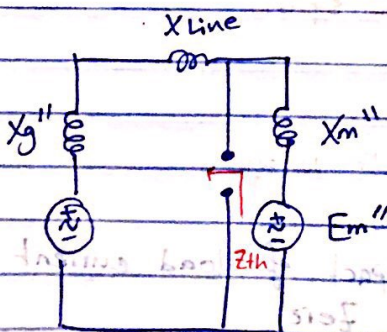 X Line
Xg" Xm"
+ - + - Em"
Zth